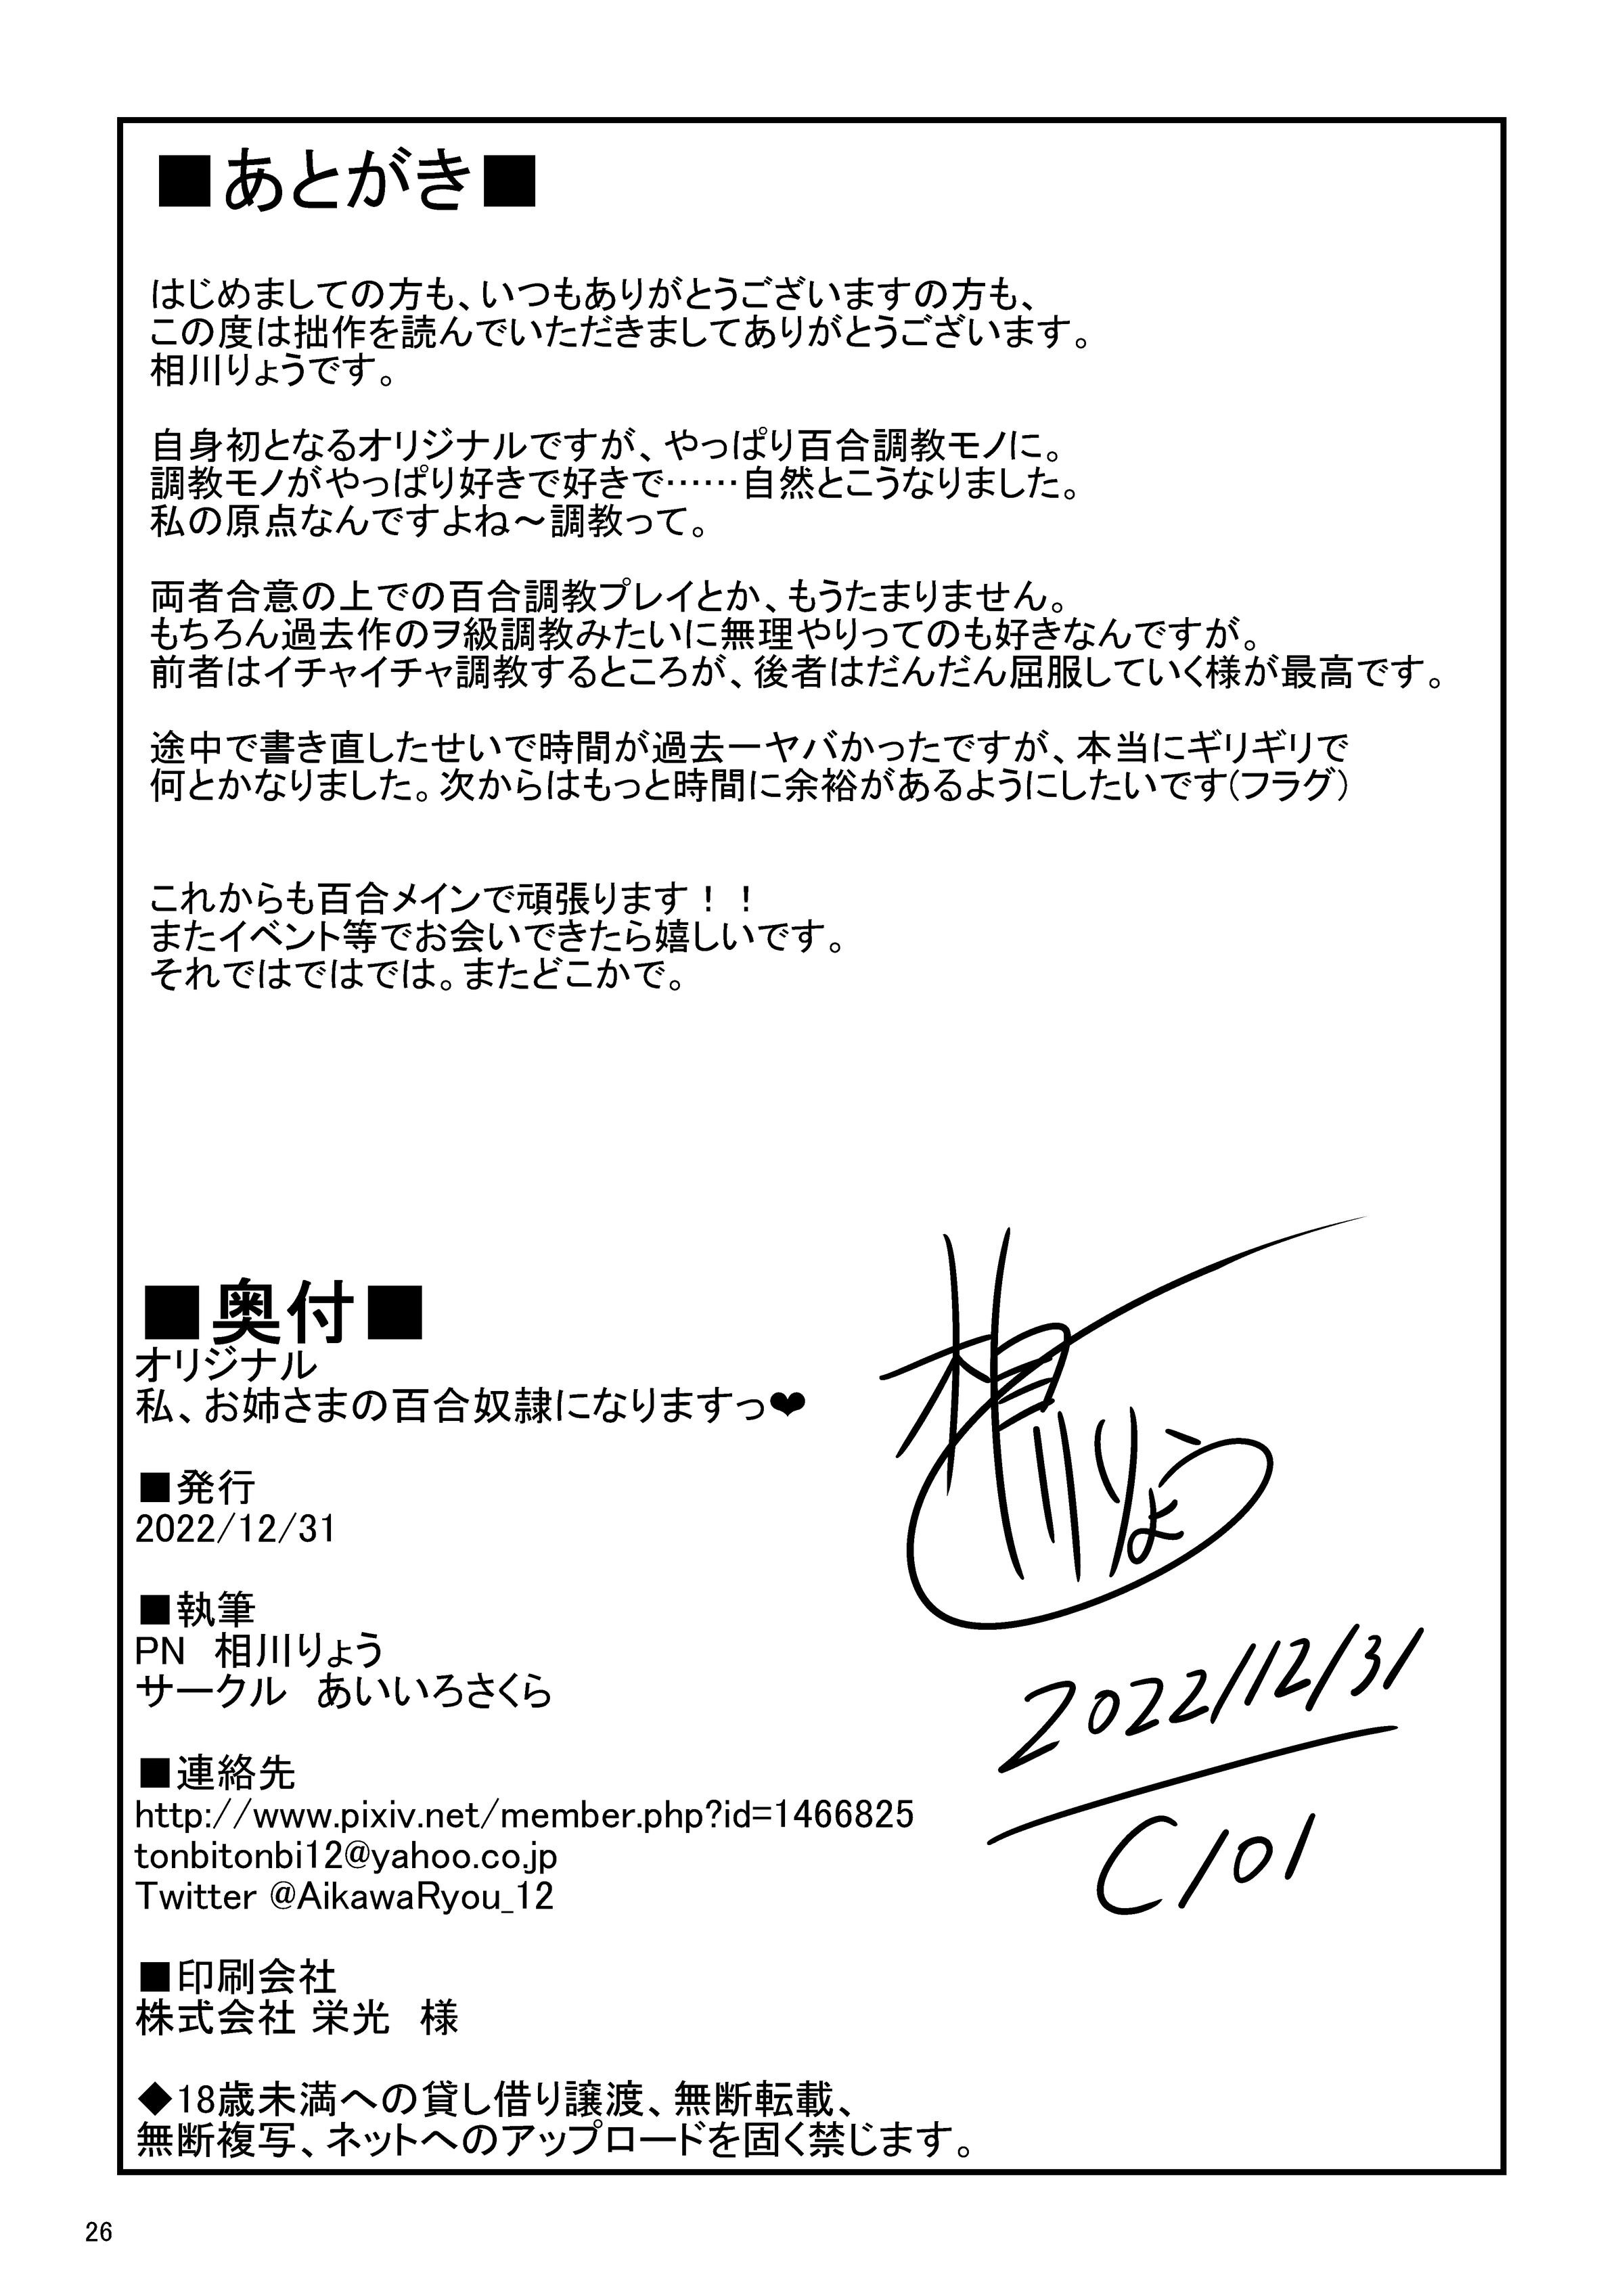 ■あとがき■
はじめましての方も、いつもありがとうございますの方も、
この度は拙作を読んでいただきましてありがとうございます。
相川りょうです。
自身初となるオリジナルですが、やっぱり百合調教モノに。
調教モノがやっぱり好きで好きで……自然とこうなりました。
私の原点なんですよね～調教って。
両者合意の上での百合調教プレイとか、もうたまりません。
もちろん過去作のヲ級調教みたいに無理やりってのも好きなんですが。
前者はイチャイチャ調教するところが、後者はだんだん屈服していく様が最高です。
途中で書き直したせいで時間が過去一ヤバかったですが、本当にギリギリで
何とかなりました。次からはもっと時間に余裕があるようにしたいです（フラグ）
これからも百合メインで頑張ります！！
またイベント等でお会いできたら嬉しいです。
それではではでは。またどこかで。
■奥付■
オリジナル
私、お姉さまの百合奴隷になりますっ❤
■発行
2022/12/31
■執筆
PN　相川りょう
サークル　あいいろさくら
■連絡先
http://www.pixiv.net/member.php?id=1466825
tonbitonbi12@yahoo.co.jp
Twitter @AikawaRyou_12
■印刷会社
株式会社 栄光　様
◆18歳未満への貸し借り譲渡、無断転載、
無断複写、ネットへのアップロードを固く禁じます。
相川りょう
2022/12/31
C101
26